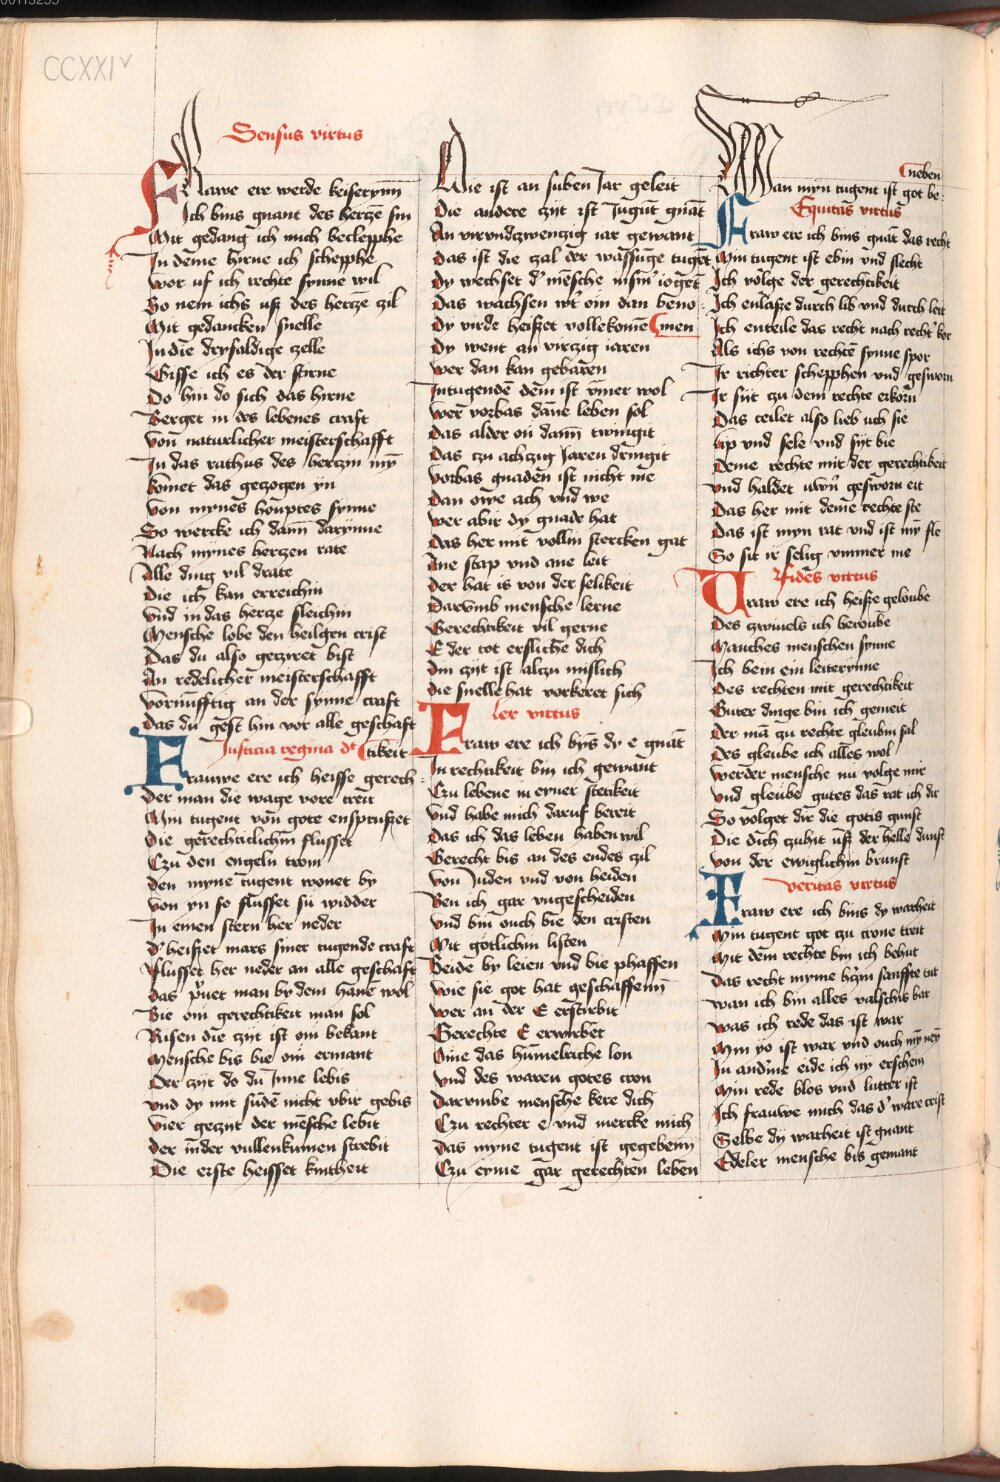 CCXXI v
Sensus virtus
Frawe ere werde keiserynn
Ich bins gnant des hercze sin
Mit gedang ich mich beclepphe
In deme hirne ich schepphe
Wor uf ich rechte synne wil
So nem ichs uß des hercze zil
Mit gedancken snelle
In die dryfaldige zelle
Gisse ich es der stirne
Do hin do sich das hirne
Berget in des lebenes craft
Von naturlicher meisterschafft
In das rathus des herczin myn
komet das geczogen yn
Von mynes houptes synne
So wercke ich dann darynne
Nach mynes herczen rate
Alle ding vil drate
Die ich kan erreichin
Vnd in das hercze sleichin
Mensche lobe den heilgen crist
Das du also gecziret bist
An redelicher meisterschafft
Vornufftig an der synne craft
Das du gest hin vor alle geschaft
Justicia regina dt
tikeit
Frauwe ere ich heisse gerech
Der man die wage vore treit
Myn tugent von gote enspruszet
Die gerechticlichin flusset
Czu den engeln trom
Den myne tugent wonet by
Von yn so flusset su widder
In einen stern her neder
Dˀ heiszet mars siner tugende craft
Flusset her neder an alle geschaft
Das pruet man by dem hane wol
Bie om gerechtikeit man sol
Risen die czit ist om bekant
Mensche bis bie om ermant
Der czyt do du Inne lebis
Vnd dy mit sunde nicht vbir gebis
Vier geczyt der mesche lebit
Der inder vullenkumen strebit
Die erste heisset kintheit
Die ist an suben Jar geleit
Die andere czyt ist Jugunt gnant
An virvndczwenczig iar gewant
Das ist die czal der wassunge tuget
Dy wechset dˀ mesche insinˀ ioget
Das wachsen wt om dan beno
Dy virde heiszet vollekomene
men
Dy went an virczig iaren
Wer dan kan gebaren
In tugenden dem ist ymer wol
Wer vorbas dane leben sol
Das alder on dann twingit
Das czu achczig Jaren dringit
Vorbas gnaden ist nicht me
Dan owe ach vnd we
Wer abir dy gnade hat
Das her mit vollin stercken gat
Ane stap vnd ane leit
Der hat is von der selikeit
Darumb mensche lerne
Gerechtikeit vil gerne
E der tot ersliche dich
Din czyt ist alczu mislich
Die snelle hat vorkeret sich
ler virtus
Fraw ere ich bys dy e gnat
In rechtikeit bin ich gewant
Czu lebene in eyner stetikeit
Vnd habe mich daruf bereit
Das ich das leben haben wil
Gerecht bis an des endes zil
Von Juden vnd von heiden
Ben ich gar vngescheiden
Vnd bin ouch bie den cristen
Mit gotlichin listen
Beide by leien vnd bie phaffen
Wie sie got hat geschaffenn
Wer an der E erstirbit
Gerechte E erwirbet
Ome das himelriche lon
Vnd des waren gotes tron
Darumbe mensche kere dich
Czu rechter e vnd mercke mich
Das myne tugent ist gegebenn
Czu eyme gar gerechten leben
neben
Wan myn tugent ist got be
Equitas virtus
Fraw ere ich bins gnat das recht
Myn tugent ist ebin vnd slecht
Ich volge der gerechtikeit
Ich enlasze durch lib vnd durch leit
Ich enteile das recht nach rechtˀ kor
Als ichs von rechte synne spor
Ir richter schepphen vnd gesworn
Ir syt czu dem rechte erkorn
Das teilet also lieb uch sie
Lip vnd sele vnd syt bie
Deme rechte mit der gerechtikeit
Vnd haldet uwrn gesworn eit
Das her mit deme rechte ste
Das ist myn rat vnd ist my fle
So sit ir selig vmmer me
Fides virtus
Vraw ere ich heisze geloube
Des zwiuels ich beroube
Manches menschen synne
Ich bein ein leiterynne
Des rechten mit gerechtikeit
Guter dinge bin ich gemeit
Der ma zu rechte gleubin sal
Des gleube ich alles wol
Werder mensche nu volge mir
Vnd gleube gutes das rat ich dir
So volget dir die gotis gunst
Die dich zuhit uß der helle dunst
Von der ewiglichin brunst
Veritas virtus
Fraw ere ich bins dy warheit
Myn tugent got zu crone treit
Mit dem rechte bin ich behut
Das recht myme hzin sanffte tut
Wan ich bin alles valschis bar
Was ich rede das ist war
Myn yo ist war vnd ouch my ney
In andˀme eide ich ny erschein
Myn rede blos vnd lutter ist
Ich frauwe mich das dˀ ware crist
Selbe dy warheit ist gnant
Edeler mensche bis gemant